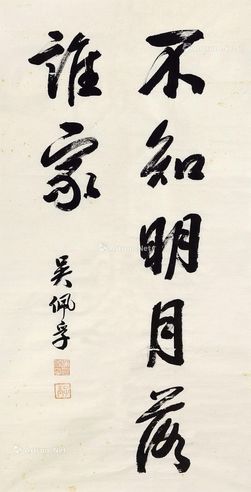 不知明月落
誰家
吳佩孚